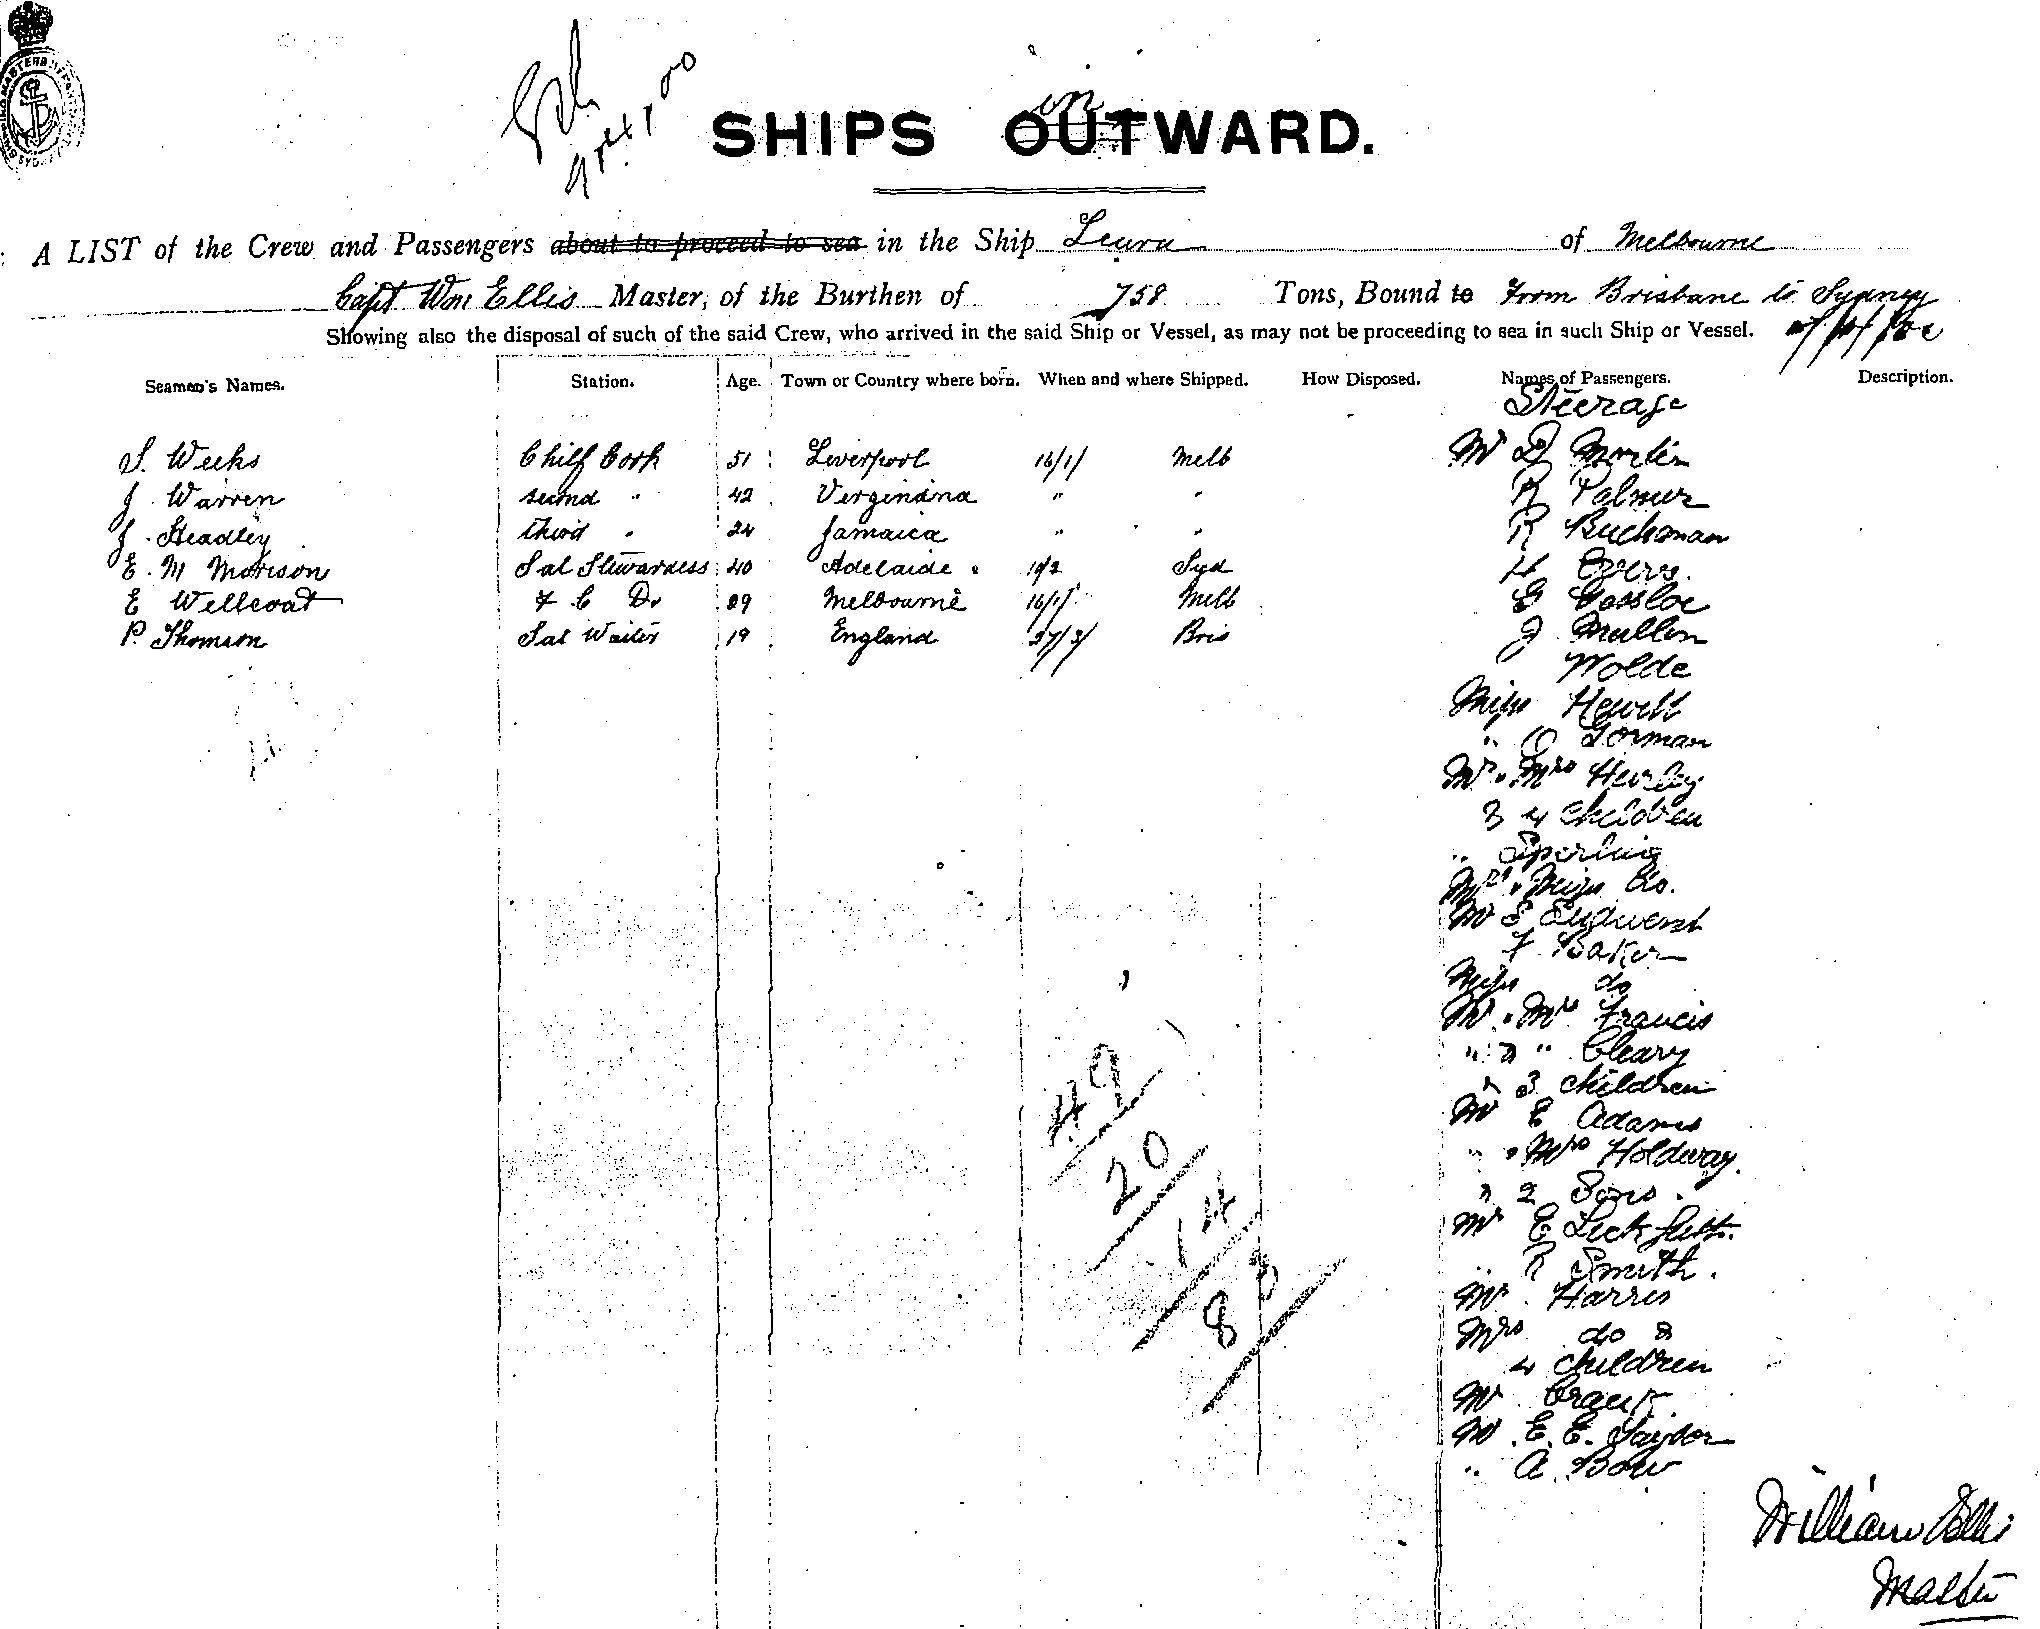 SHIPS OUTWARD.
in
A LIST of the Crew and Passengers about to proceed to sea in the Ship Leura of Melbourne
Capt Wm Ellis Master, of the Burthen of 758 Tons, Bound to From Brisbane to Sydney
Showing also the disposal of such of the said Crew, who arrived in the said Ship or Vessel, as may not be proceeding to sea in such Ship or Vessel.
Seamen's Names. Station. Age. Town or Country where born. When and where Shipped. How Disposed. Names of Passengers. Description.
Steerage
S. Weeks Chief Cook 51 Liverpool 16/1/ Melb
J. Warren second " 42 Verginina " "
J. Headley third " 24 Jamaica " "
E. M Morison Sal Stewardess 40 Adelaide Syd
E Wellcoat F C Do 29 Melbourne 16/1/ Melb
P. Thomson Sal Waiter 19 England 27/3/ Bris
Mr D Martin
R Palmer
R Buchanan
H
G
J Mullen
Wolde
Miss Hewett
" O Gorman
Mr & Mrs Hurley
children
" Sperling
Mrs & Miss Do.
Mr E
F Baker
Miss do
Mr & Mrs Francis
" & " Cleary
& 3 children
Mr E Adams
" & Mrs Holdway.
& 2 Sons.
Mr E
" R Smith.
Mr Harris
Mrs do &
4 children
Mr
Mr E. E. Taylor
" A. Bow
49
20
14
83
William Ellis
Master